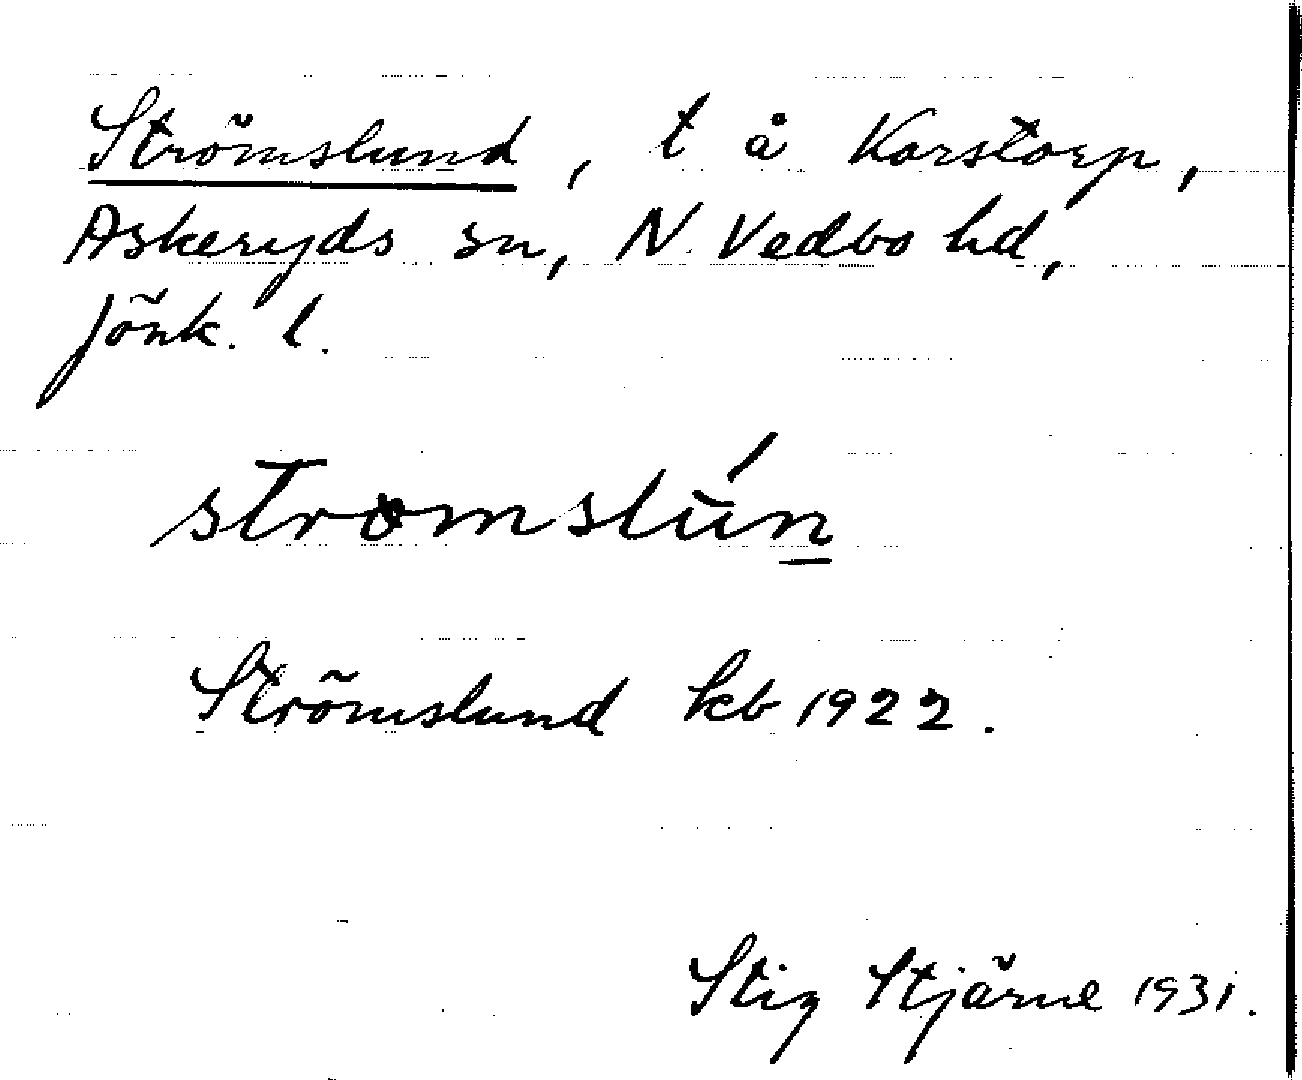 Strömslund, t å Karstorp,
Askeryds sn, N. Vedbo hd,
Jönk. l.
strömslún
Strömslund kb 1922.
Stig Stjärne 1931.